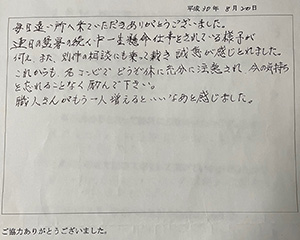 平成30年8月20日
毎日遠い所へ来ていただきありがとうございました。
連日の猛暑の続く中一生懸命仕事をされている様子が
何え、また、別件の相談にも乗って戴き誠意が感じとれました。
これからも、名コンビでどうぞ体に充分に注意され、今の気持ち
を忘れることなく励んで下さい。
職人さんがもう一人増えるといいなあと感じました。
ご協力ありがとうございました。